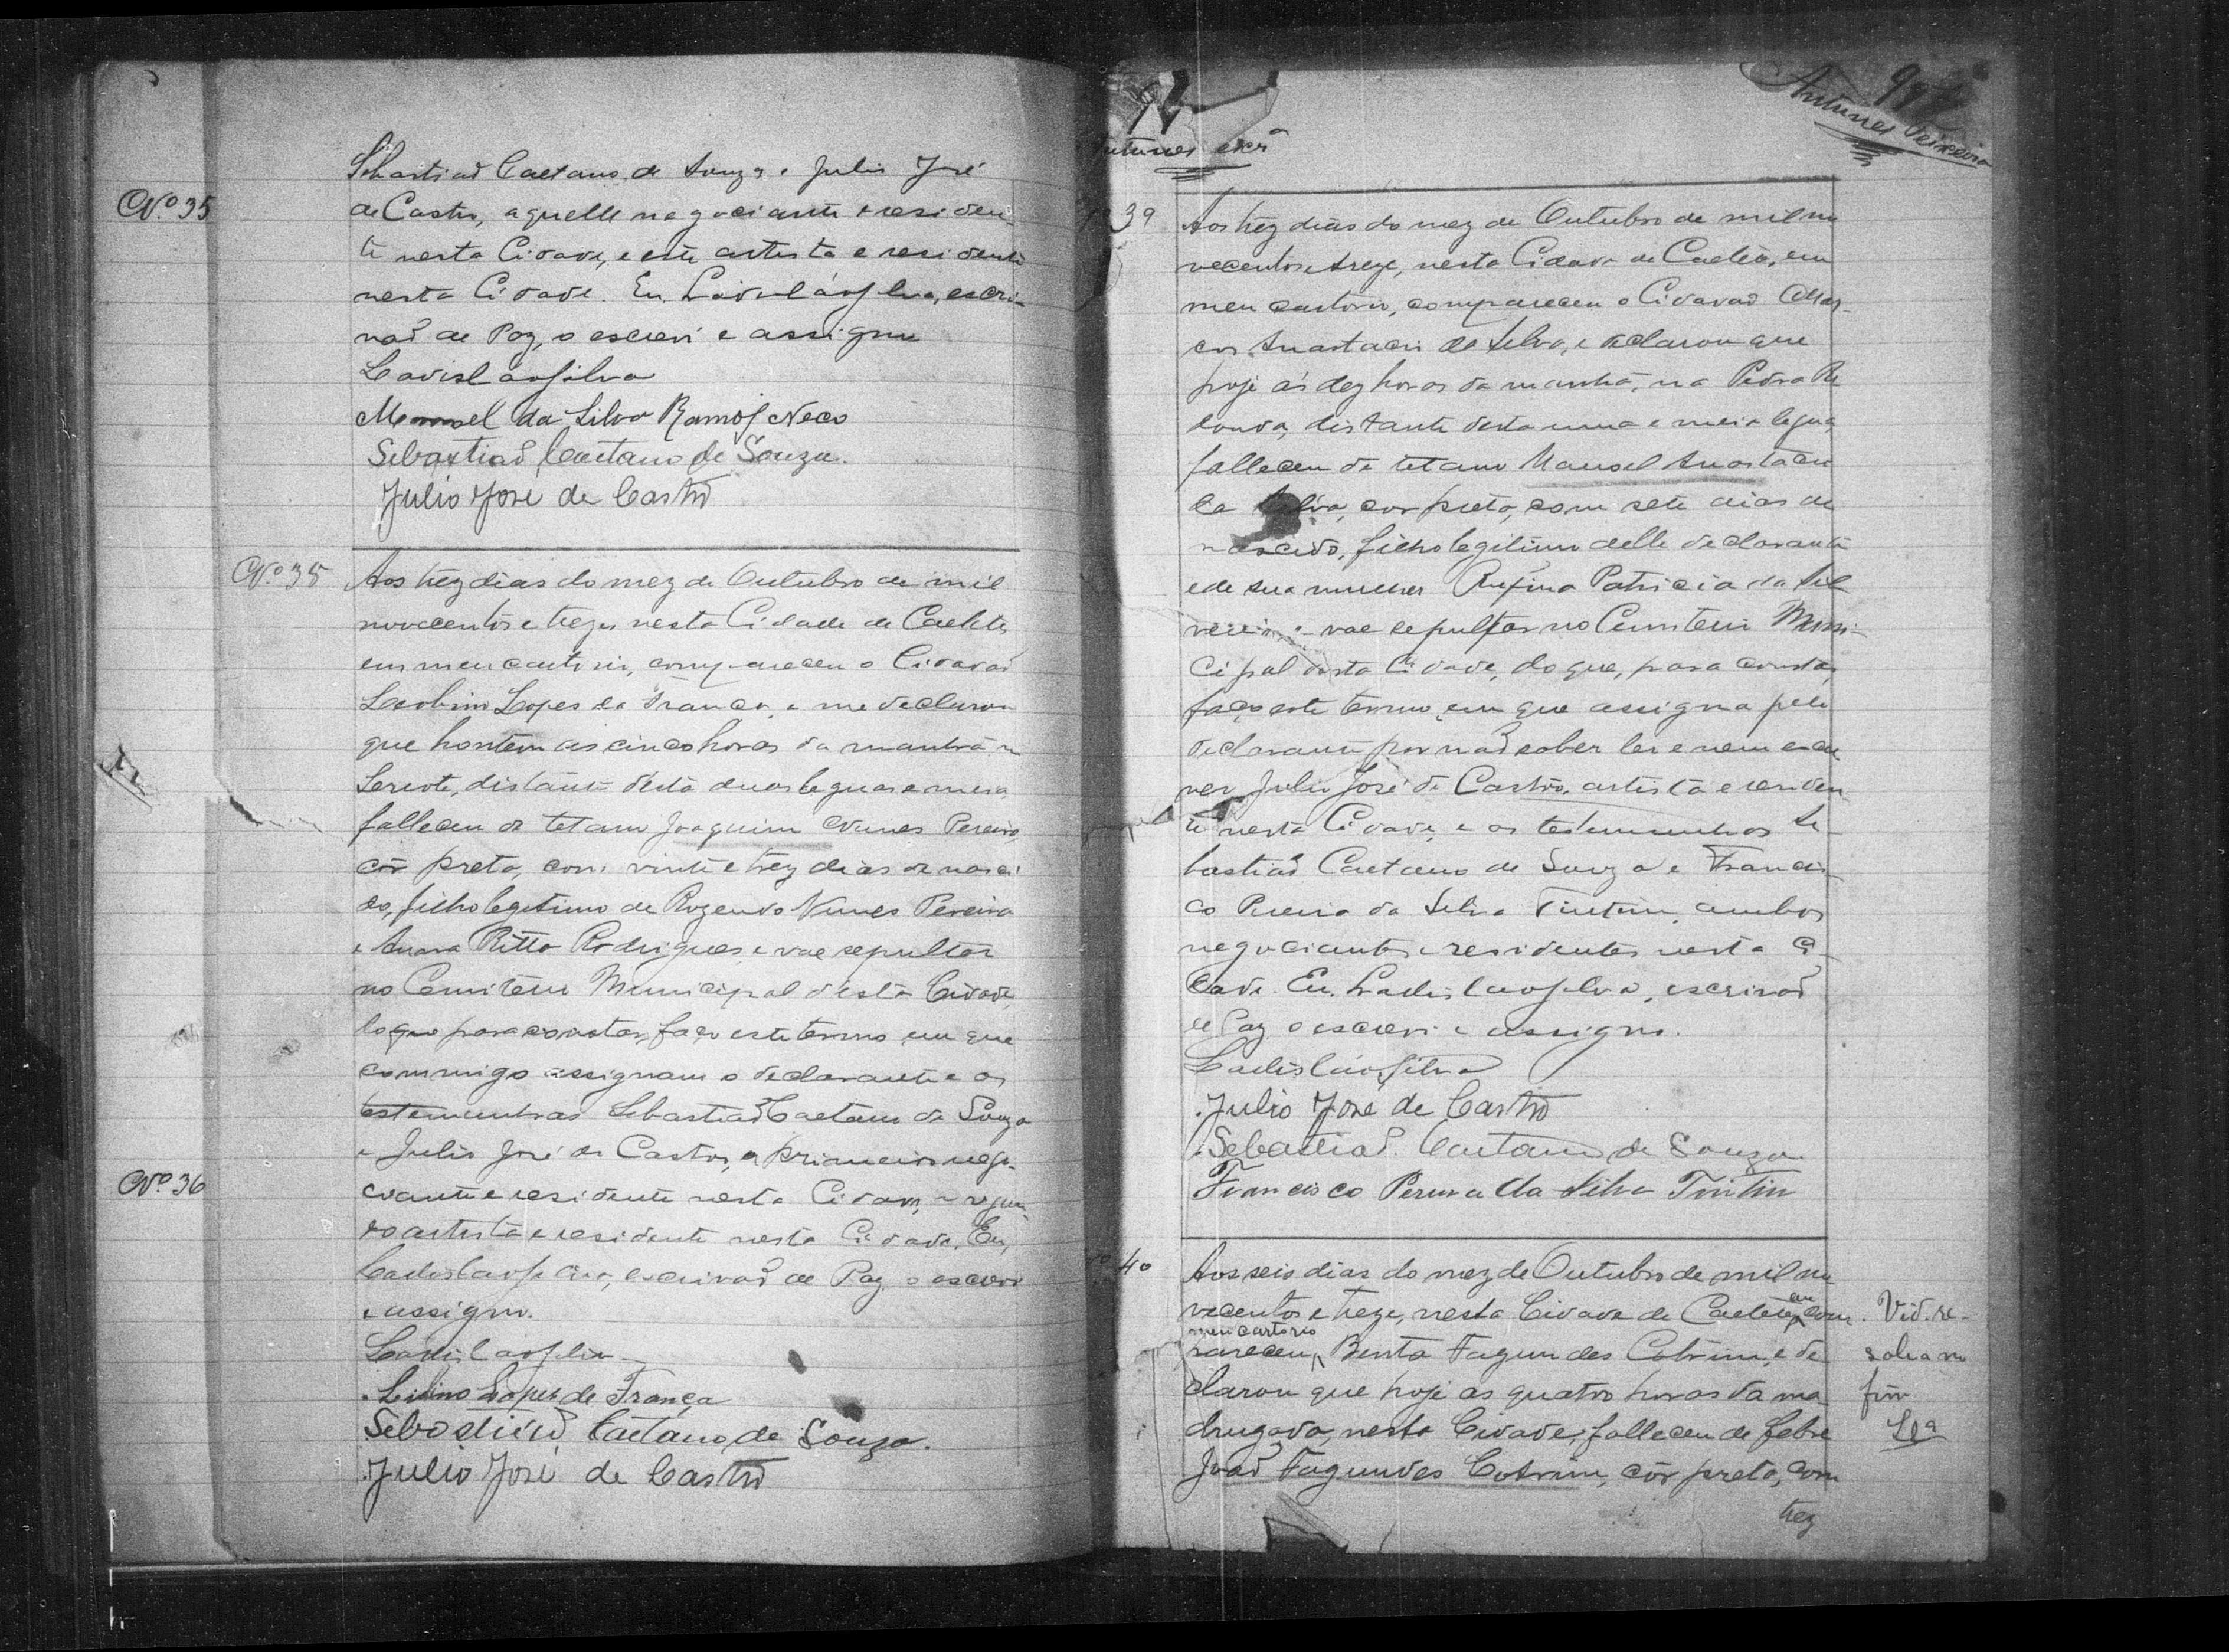 Nº 35
Nº 36
Sebastiaõ Caetano de Souza e Julio José
de Castro, aquelle negociante e residen-
te nesta Cidade, e este artista e residente
nesta Cidade. Eu, Ladisláo Silva, escri-
vaõ de Paz, o escrevi e assigno
Ladisláo Silva
Manoel da Silva Ramos Neco
Sebastiaõ Caetano de Souza.
Julio José de Castro
Nº 38
Aos trez dias do mez de Outubro de mil
novecentos e treze, nesta Cidade de Caeteté,
em meu cartorio, compareceu o Cidadaõ
Lopes da França, e me declarou
que hontem as cinco horas da manhã, n
distante desta duas leguas e meia
falleceu de tetano Joaquim Nunes Pereira,
côr preta, com vinte e trez dias de nasci-
do, filho legitimo de Rozendo Nunes Pereira
e Anna Ritta Rodrigues, e vae sepultar
no Cemiterio Municipal desta Cidade,
do que para constar, faço este termo em que
commigo assignam o declarante e as
testemunhas Sebastiaõ Caetano de Souza
e Julio José de Castro, o primeiro nego-
ciante e residente nesta Cidade, e o segun-
do artista e residente nesta Cidade. Eu,
Ladislao Silva, escrivaõ de Paz o escrevi
e assigno.
Ladislao Silva
Lopes de França
Sebastiaõ Caetano de Souza.
Julio José de Castro
Antunes Teixeira
Antunes escr
39
Aos trez dias do mez de Outubro de mil no-
vecentos e treze, nesta Cidade de Caeteté, em
meu cartorio, compareceu o Cidadaõ Mar-
cos Anastacio da Silva, e declarou que
hoje as dez horas da manhã, na Pedra Re-
donda, distante desta uma e meia legua,
falleceu de tetano Manoel Anastacio
da Silva, cor preta, com sete dias de
nascido, filho legitimo delle declarante
e de sua mulher Rufina Patricia da Sil
veira, e vae sepultar no Cemiterio Muni-
cipal desta Cidade, do que, para constar,
faço este termo, em que assigna pelo
declarante por naõ saber ler e nem escre
ver Julio José de Castro, artista e residen
te nesta Cidade, e as testemunhas Se-
bastiaõ Caetano de Souza e Francis-
co Pereira da Silva Tintin, ambos
negociantes e residentes nesta Ci-
dade. Eu, Ladislao Silva, escrivaõ
de Paz o escrevi e assigno.
Ladisláo Silva
Julio José de Castro
Sebastiaõ Caetano de Souza
Francisco Pereira da Silva Tintin
40
Aos seis dias do mez de Outubro de mil no
vecentos e treze, nesta Cidade de Caeteté, em com-
meu cartorio
pareceu Bento Fagundes Cotrim, e de
clarou que hoje as quatro horas da ma
drugada, nesta Cidade, falleceu de febre
Joaõ Fagundes Cotrim, côr preta, com
trez
Vid. re-
salva no
fim